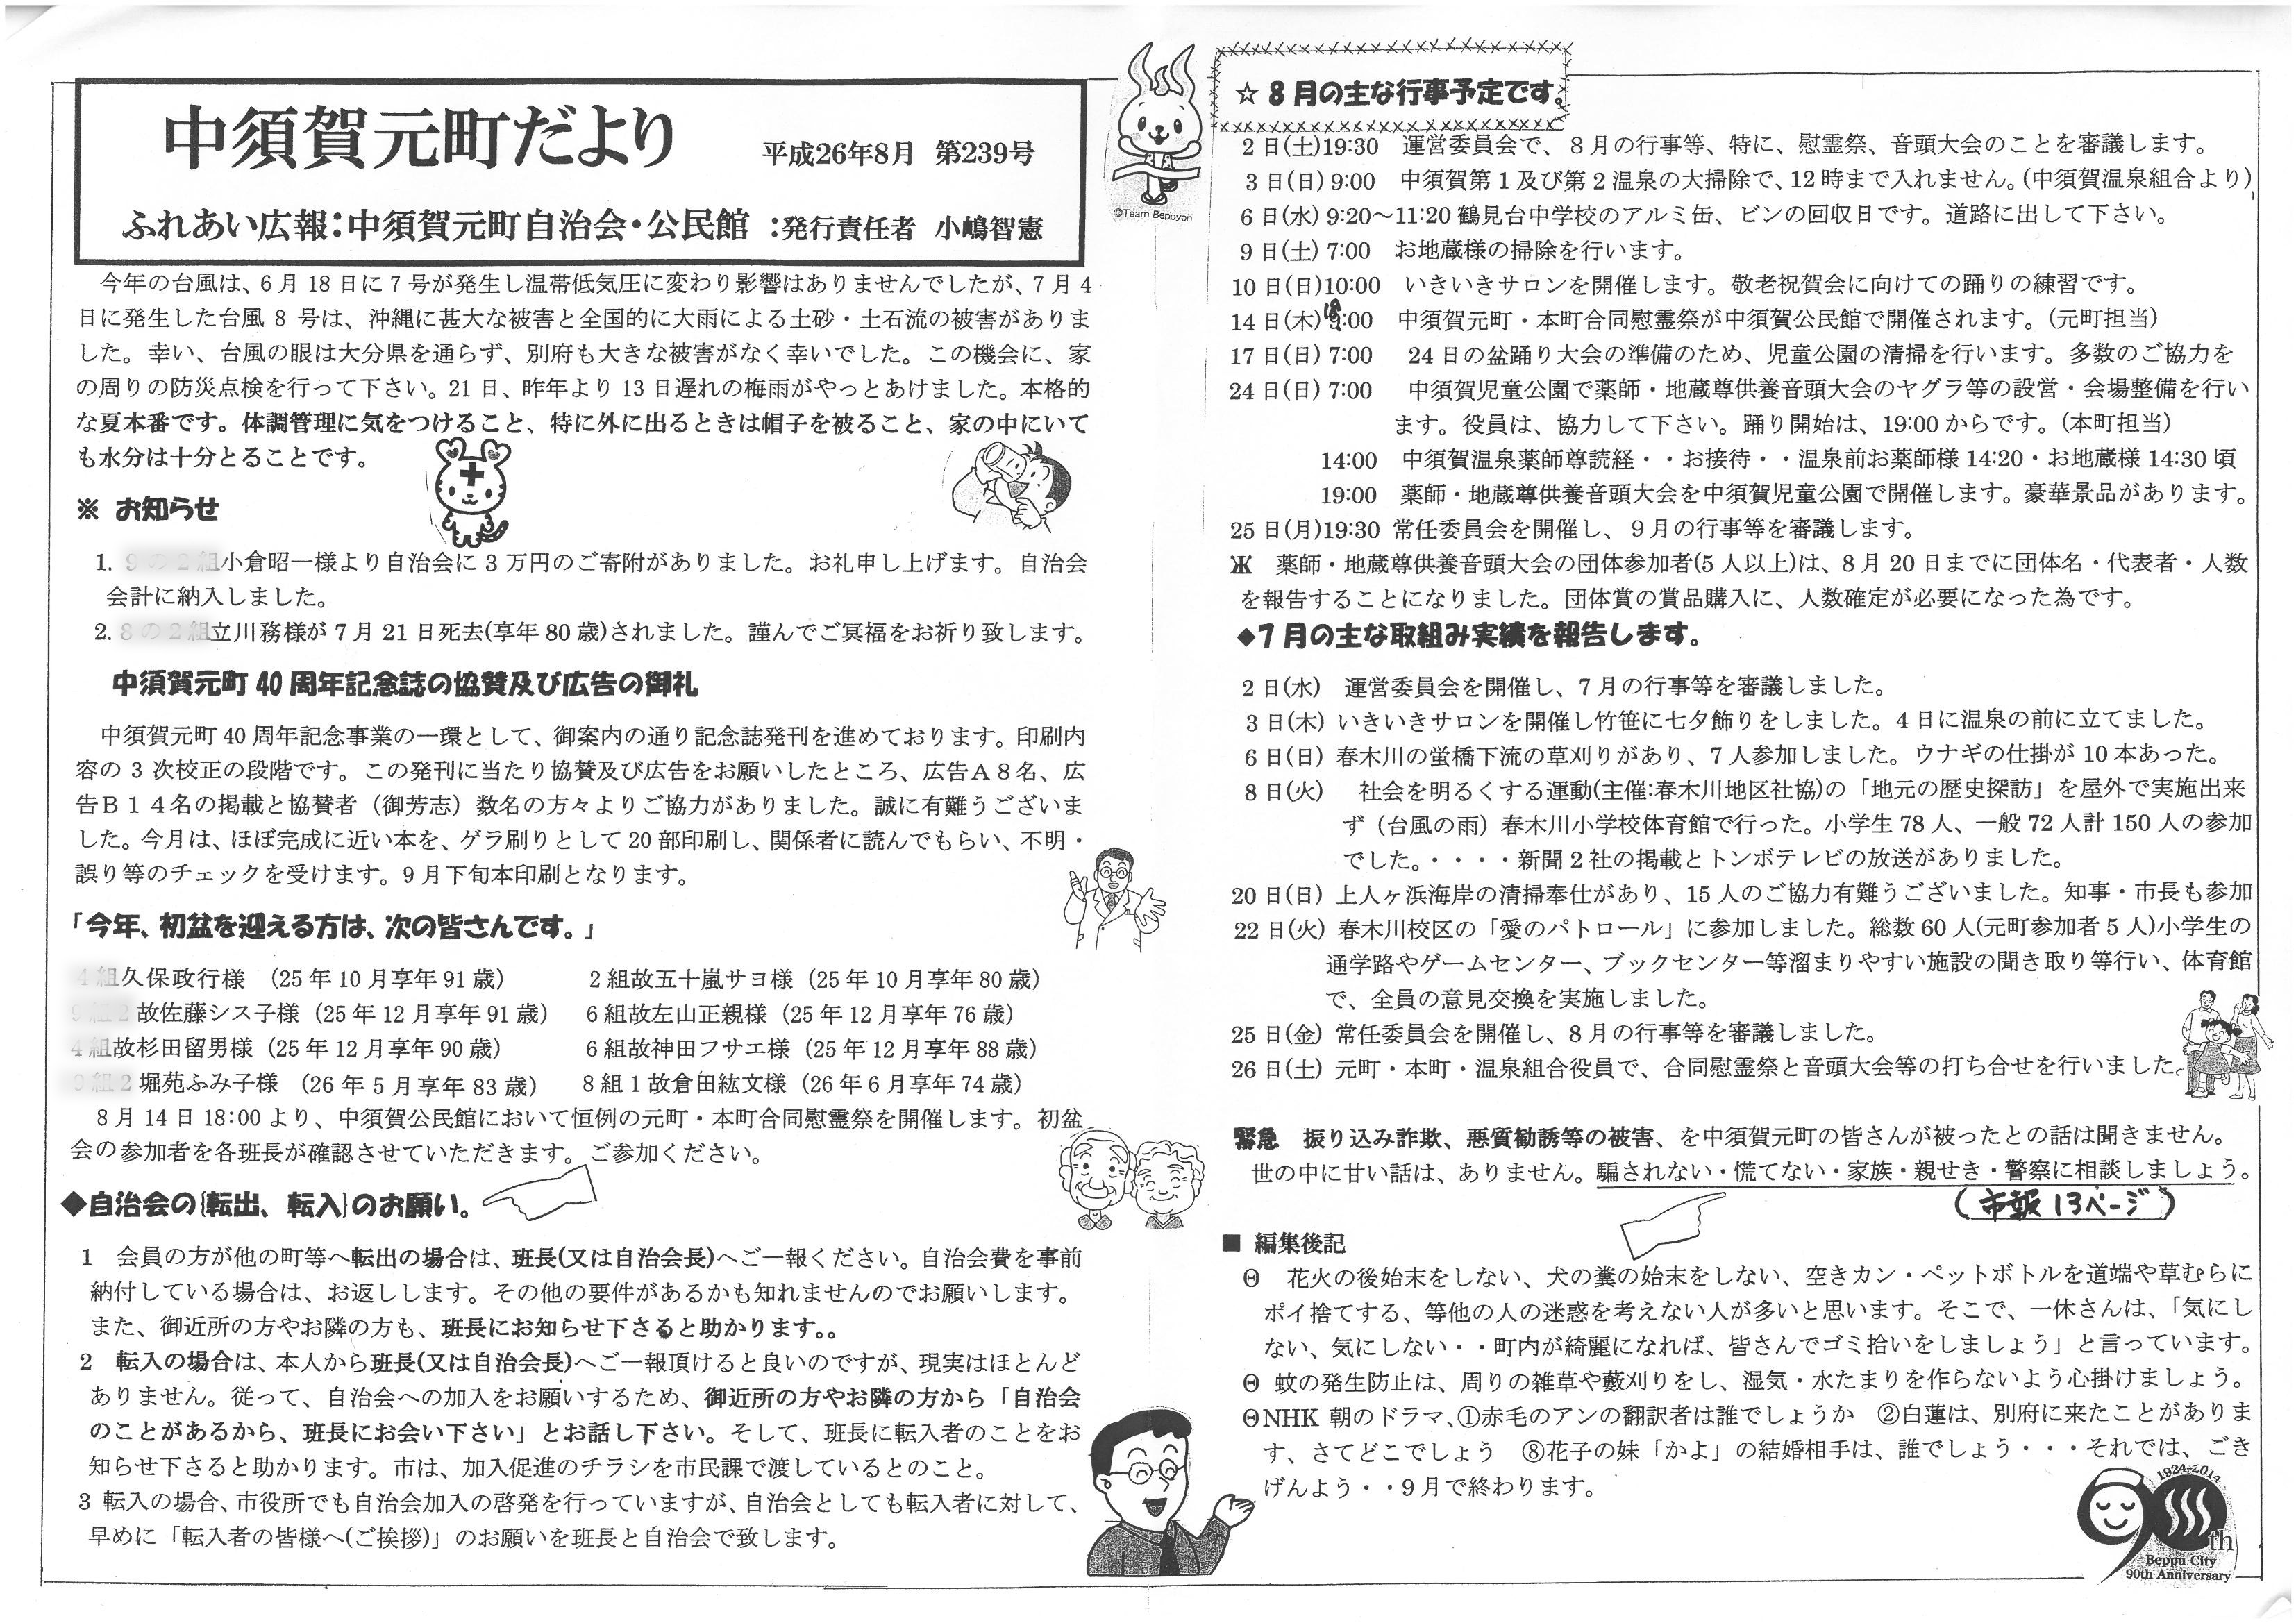 中須賀元町だより 平成26年8月 第239号
ふれあい広報:中須賀元町自治会・公民館 :発行責任者 小嶋智憲
今年の台風は、6月18日に7号が発生し温帯低気圧に変わり影響はありませんでしたが、7月4
日に発生した台風8号は、沖縄に甚大な被害と全国的に大雨による土砂・土石流の被害がありま
した。幸い、台風の眼は大分県を通らず、別府も大きな被害がなく幸いでした。この機会に、家
の周りの防災点検を行って下さい。21日、昨年より13日遅れの梅雨がやっとあけました。本格的
な夏本番です。体調管理に気をつけること、特に外に出るときは帽子を被ること、家の中にいて
も水分は十分とることです。
※ お知らせ
1. 9の2組小倉昭一様より自治会に3万円のご寄附がありました。お礼申し上げます。自治会
会計に納入しました。
2. 8の2組立川務様が7月21日死去(享年80歳)されました。謹んでご冥福をお祈り致します。
中須賀元町40周年記念誌の協賛及び広告の御礼
中須賀元町40周年記念事業の一環として、御案内の通り記念誌発刊を進めております。印刷内
容の3次校正の段階です。この発刊に当たり協賛及び広告をお願いしたところ、広告A8名、広
告B14名の掲載と協賛者（御芳志）数名の方々よりご協力がありました。誠に有難うございま
した。今月は、ほぼ完成に近い本を、ゲラ刷りとして20部印刷し、関係者に読んでもらい、不明・
誤り等のチェックを受けます。9月下旬本印刷となります。
「今年、初盆を迎える方は、次の皆さんです。」
4組久保政行様 （25年10月享年91歳） 2組故五十嵐サヨ様（25年10月享年80歳）
9組2故佐藤シス子様（25年12月享年91歳） 6組故左山正親様（25年12月享年76歳）
4組故杉田留男様（25年12月享年90歳） 6組故神田フサエ様（25年12月享年88歳）
9組2堀苑ふみ子様 （26年5月享年83歳） 8組1故倉田紘文様（26年6月享年74歳）
8月14日18:00より、中須賀公民館において恒例の元町・本町合同慰霊祭を開催します。初盆
会の参加者を各班長が確認させていただきます。ご参加ください。
◆自治会の{転出、転入}のお願い。
1 会員の方が他の町等へ転出の場合は、班長(又は自治会長)へご一報ください。自治会費を事前
納付している場合は、お返しします。その他の要件があるかも知れませんのでお願いします。
また、御近所の方やお隣の方も、班長にお知らせ下さると助かります。。
2 転入の場合は、本人から班長(又は自治会長)へご一報頂けると良いのですが、現実はほとんど
ありません。従って、自治会への加入をお願いするため、御近所の方やお隣の方から「自治会
のことがあるから、班長にお会い下さい」とお話し下さい。そして、班長に転入者のことをお
知らせ下さると助かります。市は、加入促進のチラシを市民課で渡しているとのこと。
3 転入の場合、市役所でも自治会加入の啓発を行っていますが、自治会としても転入者に対して、
早めに「転入者の皆様へ(ご挨拶)」のお願いを班長と自治会で致します。
©Team Beppyon
☆8月の主な行事予定です。
2日(土)19:30 運営委員会で、8月の行事等、特に、慰霊祭、音頭大会のことを審議します。
3日(日) 9:00 中須賀第1及び第2温泉の大掃除で、12時まで入れません。(中須賀温泉組合より)
6日(水) 9:20～11:20 鶴見台中学校のアルミ缶、ビンの回収日です。道路に出して下さい。
9日(土) 7:00 お地蔵様の掃除を行います。
10日(日)10:00 いきいきサロンを開催します。敬老祝賀会に向けての踊りの練習です。
14日(木)18:00 中須賀元町・本町合同慰霊祭が中須賀公民館で開催されます。(元町担当)
17日(日) 7:00 24日の盆踊り大会の準備のため、児童公園の清掃を行います。多数のご協力を
24日(日) 7:00 中須賀児童公園で薬師・地蔵尊供養音頭大会のヤグラ等の設営・会場整備を行い
ます。役員は、協力して下さい。踊り開始は、19:00からです。(本町担当)
14:00 中須賀温泉薬師尊読経・・お接待・・温泉前お薬師様14:20・お地蔵様14:30頃
19:00 薬師・地蔵尊供養音頭大会を中須賀児童公園で開催します。豪華景品があります。
25日(月)19:30 常任委員会を開催し、9月の行事等を審議します。
Ж 薬師・地蔵尊供養音頭大会の団体参加者(5人以上)は、8月20日までに団体名・代表者・人数
を報告することになりました。団体賞の賞品購入に、人数確定が必要になった為です。
◆7月の主な取組み実績を報告します。
2日(水) 運営委員会を開催し、7月の行事等を審議しました。
3日(木) いきいきサロンを開催し竹笹に七夕飾りをしました。4日に温泉の前に立てました。
6日(日) 春木川の蛍橋下流の草刈りがあり、7人参加しました。ウナギの仕掛が10本あった。
8日(火) 社会を明るくする運動(主催:春木川地区社協)の「地元の歴史探訪」を屋外で実施出来
ず（台風の雨）春木川小学校体育館で行った。小学生78人、一般72人計150人の参加
でした。・・・・新聞2社の掲載とトンボテレビの放送がありました。
20日(日) 上人ヶ浜海岸の清掃奉仕があり、15人のご協力有難うございました。知事・市長も参加
22日(火) 春木川校区の「愛のパトロール」に参加しました。総数60人(元町参加者5人)小学生の
通学路やゲームセンター、ブックセンター等溜まりやすい施設の聞き取り等行い、体育館
で、全員の意見交換を実施しました。
25日(金) 常任委員会を開催し、8月の行事等を審議しました。
26日(土) 元町・本町・温泉組合役員で、合同慰霊祭と音頭大会等の打ち合せを行いました。
緊急 振り込み詐欺、悪質勧誘等の被害、を中須賀元町の皆さんが被ったとの話は聞きません。
世の中に甘い話は、ありません。騙されない・慌てない・家族・親せき・警察に相談しましょう。
(市報13ページ)
■ 編集後記
Θ 花火の後始末をしない、犬の糞の始末をしない、空きカン・ペットボトルを道端や草むらに
ポイ捨てする、等他の人の迷惑を考えない人が多いと思います。そこで、一休さんは、「気にし
ない、気にしない・・町内が綺麗になれば、皆さんでゴミ拾いをしましょう」と言っています。
Θ 蚊の発生防止は、周りの雑草や藪刈りをし、湿気・水たまりを作らないよう心掛けましょう。
ΘNHK 朝のドラマ、①赤毛のアンの翻訳者は誰でしょうか ②白蓮は、別府に来たことがありま
す、さてどこでしょう ⑧花子の妹「かよ」の結婚相手は、誰でしょう・・・それでは、ごき
げんよう・・9月で終わります。
1924-2014
90th
Beppu City
90th Anniversary